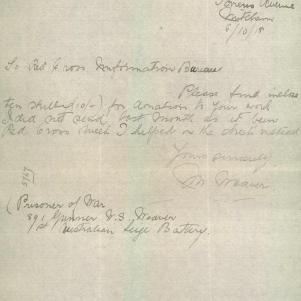 Avenue
6/10/18
To Red Cross Information Bureau
Please find
ten shillings (10/-) for donation to your work
I did not send last month as it been
Red Cross week I helped in the street instead
Yours sincerely
M Weaver
(Prisoner of War
891 Gunner W.S. Weaver
1st Australian Siege Battery.